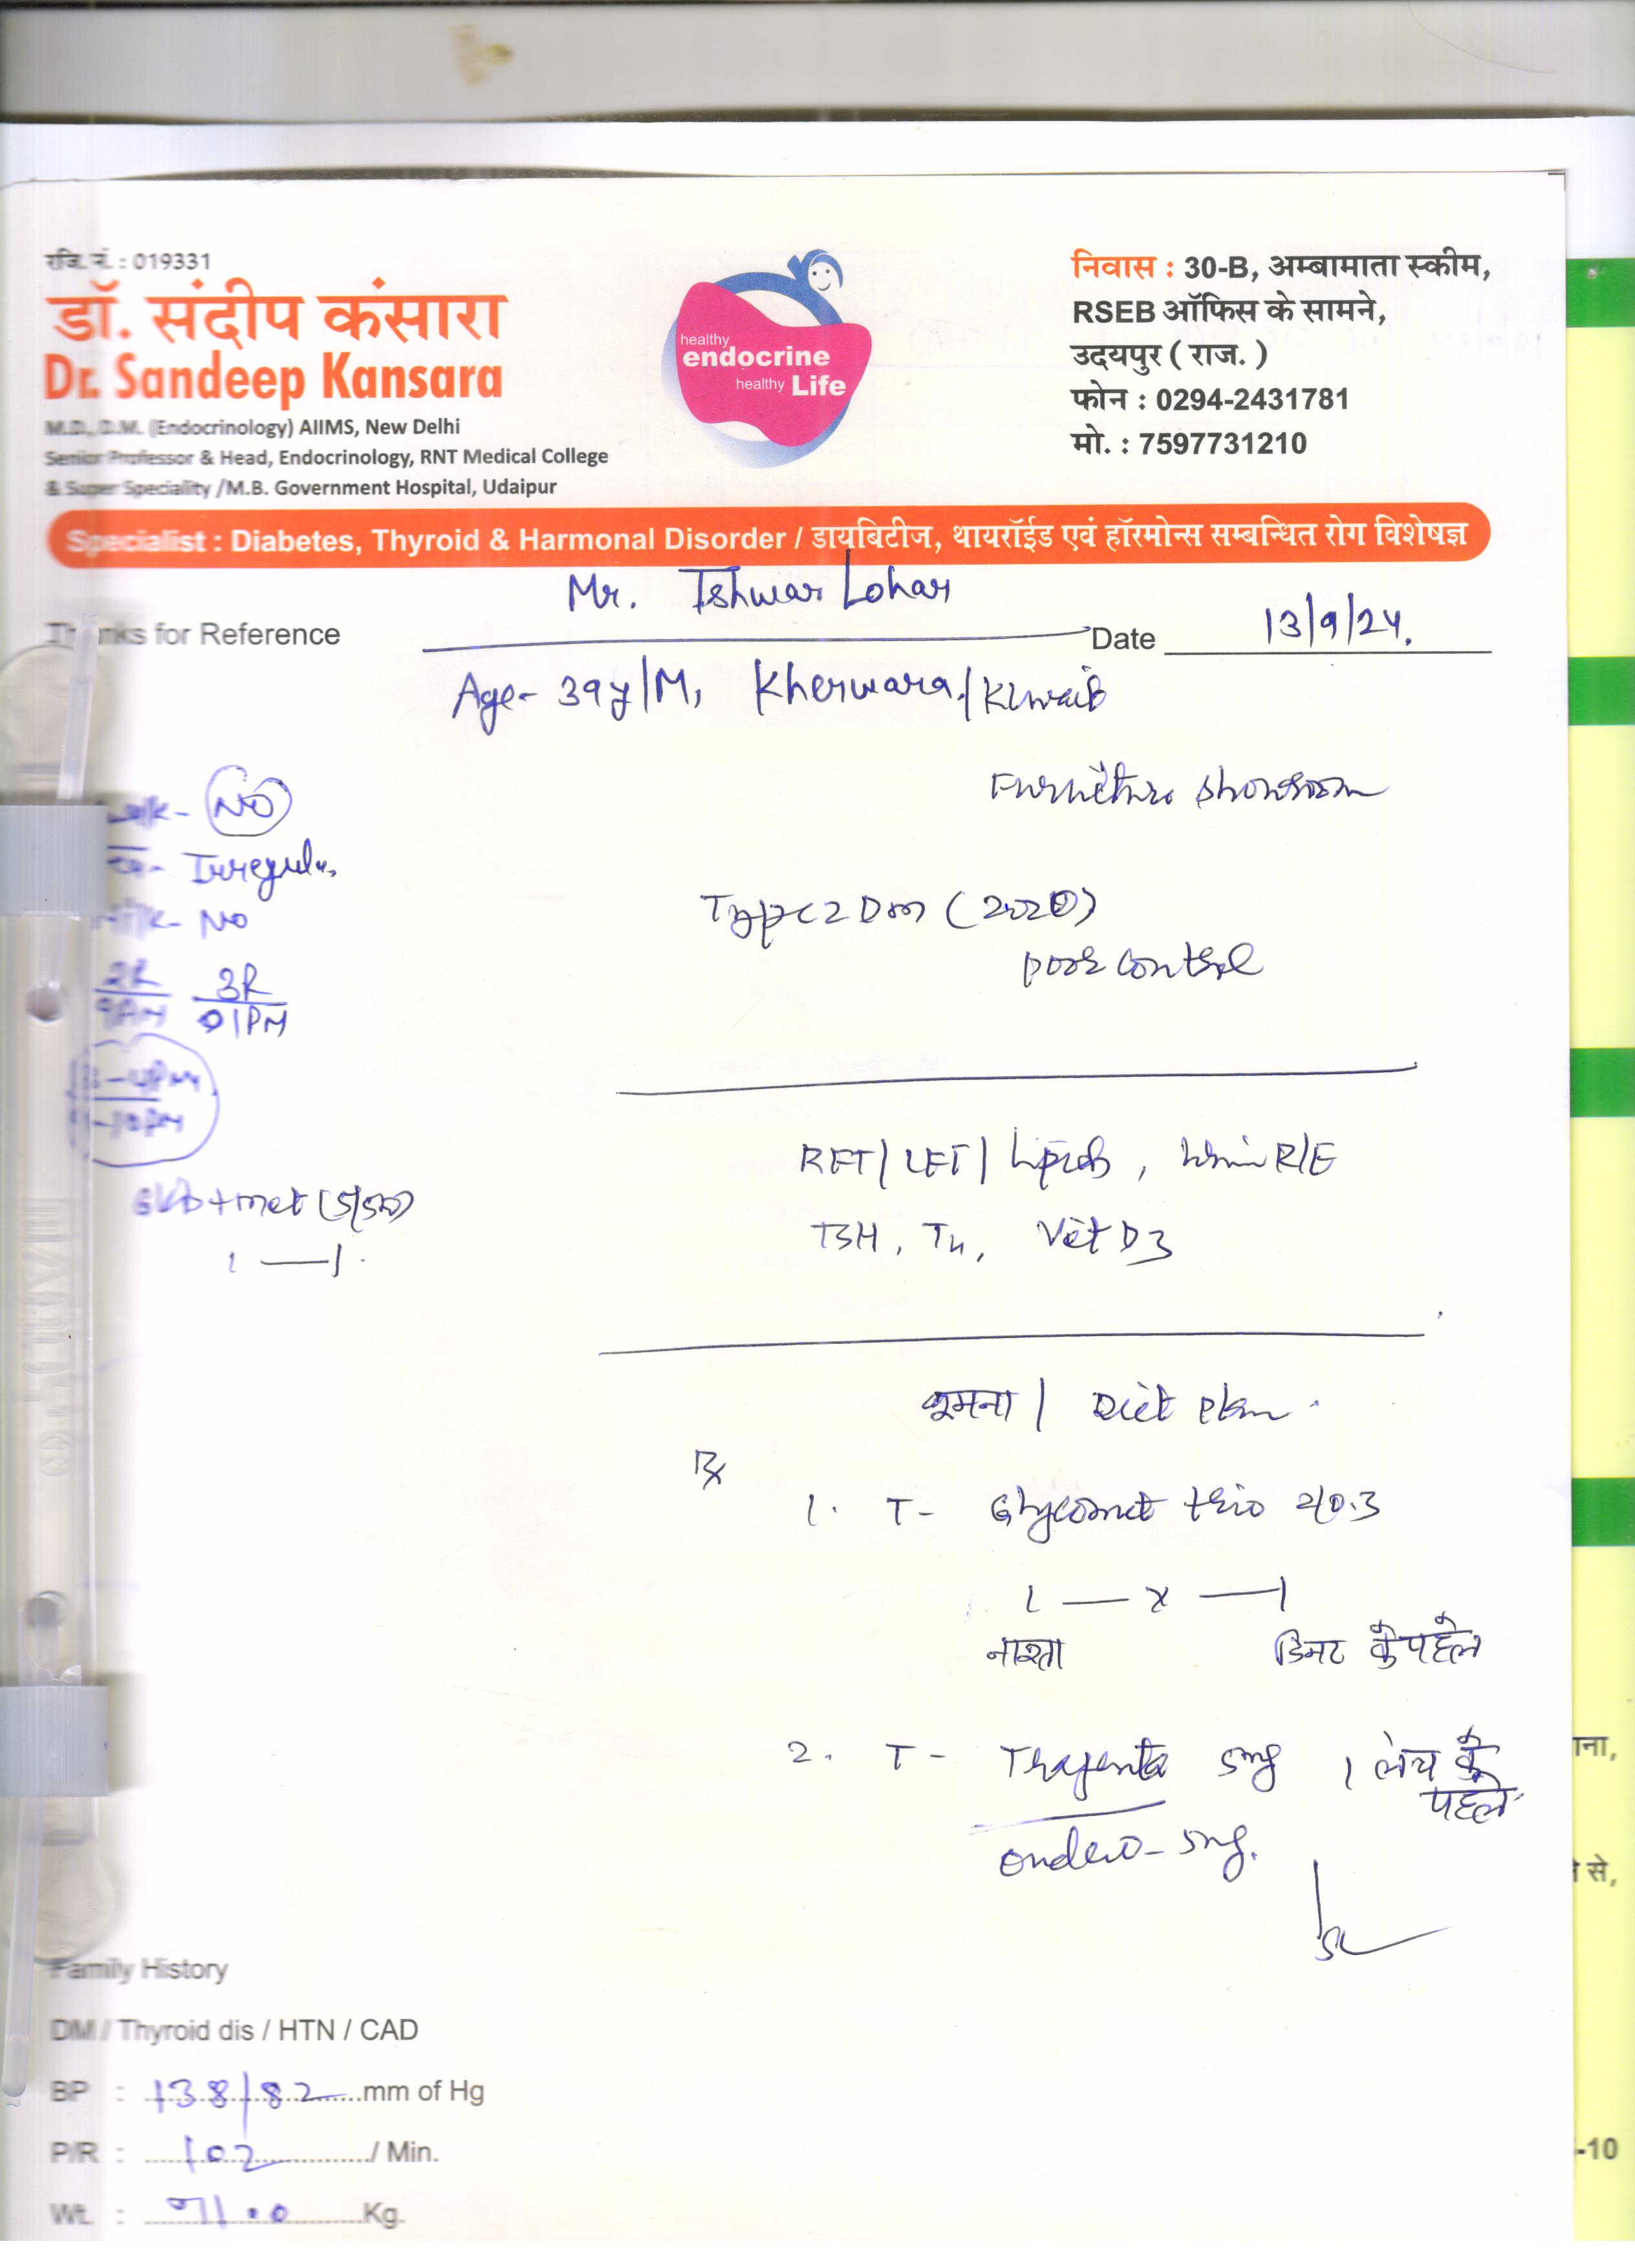 रजि. नं. : 019331
डॉ. संदीप कंसारा
Dr. Sandeep Kansara
M.D., D.M. (Endocrinology) AIIMS, New Delhi
Senior Professor & Head, Endocrinology, RNT Medical College
& Super Speciality /M.B. Government Hospital, Udaipur
healthy
endocrine
healthy Life
निवास : 30-B, अम्बामाता स्कीम,
RSEB ऑफिस के सामने,
उदयपुर ( राज. )
फोन : 0294-2431781
मो. : 7597731210
Specialist : Diabetes, Thyroid & Harmonal Disorder / डायबिटीज, थायरॉईड एवं हॉरमोन्स सम्बन्धित रोग विशेषज्ञ
Mr. Ishwar Lohar
Thanks for Reference Date 13/9/24.
Age- 39y/M, Kherwara/Kuwait
Furniture showroom
walk- NO
Irregular
Milk- No
2R 3R
9AM 01PM
-4PM
-10PM
Type 2 DM (2020)
poor control
RFT/ LFT/ Lipids, Urine R/E
TSH, T4, Vit D3
Glib+met (5/500)
1 — 1
घूमना / Diet Plan
Rx
1. T- Glycomet trio 2/0.3
1 — x — 1
नाश्ता डिनर के पहले
2. T- Trajenta 5mg 1 लंच के
पहले
ondero- 5mg.
Family History
DM / Thyroid dis / HTN / CAD
BP : 138/82 mm of Hg
P/R : 102 / Min.
Wt. : 71.0 Kg.
ना,
से,
-10